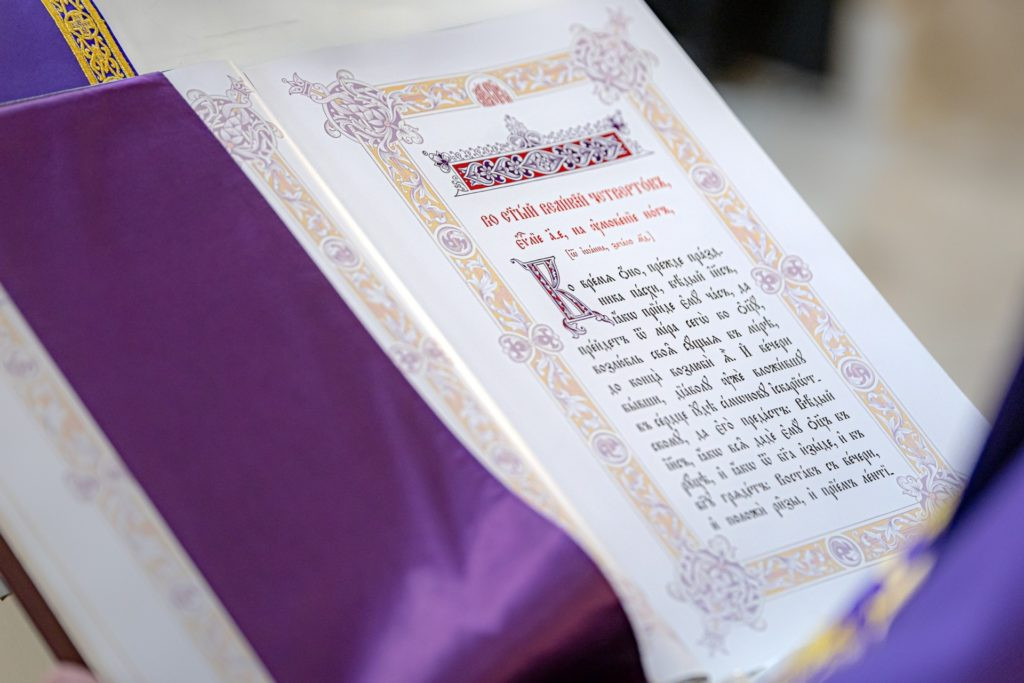 Во ст҃ы́й вели́кїй четверто́къ,
є҆ѵⷢ҇лїе а҃.є, на ᲂу҆мове́нїе но́гъ,
[ѿ і҆ѡа́нна, зача́ло м҃д.]
Во вре́мѧ ѻ҆́но, пре́жде пра́зд-
ника па́схи, вѣ́дый і҆и҃съ,
ꙗ҆́кѡ прїи́де є҆мꙋ̀ ча́съ, да
пре́йдетъ ѿ мі́ра сегѡ̀ ко ѻ҆ц҃ꙋ̀,
возлю́бль своѧ̑ сꙋ́щыѧ въ мі́рѣ,
до конца̀ возлюбѝ ѧ҆̀. И҆ ве́чери
бы́вшей, дїа́волꙋ ᲂу҆жѐ вложи́вшꙋ
въ се́рдце і҆ꙋ́дѣ сі́мѡновꙋ і҆скарїѡ́т-
скомꙋ, да є҆го̀ преда́стъ: Вѣ́дый
і҆и҃съ, ꙗ҆́кѡ всѧ̑ дадѐ є҆мꙋ̀ ѻ҆ц҃ъ въ
рꙋ́цѣ, и҆ ꙗ҆́кѡ ѿ бг҃а и҆зы́де, и҆ къ
бг҃ꙋ грѧде́тъ: Воста́въ съ ве́чери,
и҆ положѝ ри̑зы, и҆ прїе́мь ле́нтї-